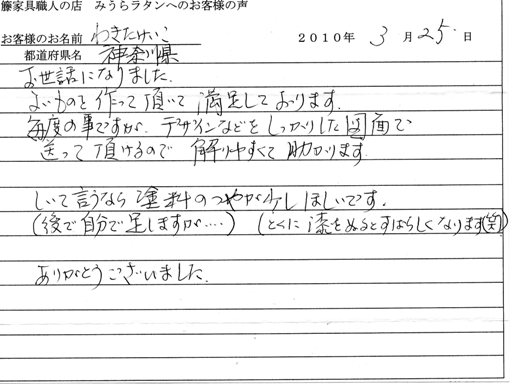 籐家具職人の店 みうらラタンへのお客様の声
お客様のお名前 わきたけいこ 2010年 3月25日
都道府県名 神奈川県
お世話になりました。
よいものを作って頂いて 満足しております。
毎度の事ですが、デザインなどをしっかりした図面で
送って頂けるので 解りやすくて助かります。
しいて言うなら塗料のつやが少しほしいです。
(後で自分で足しますが‥‥) (とくに漆をぬるとすばらしくなります(笑))
ありがとうございました。